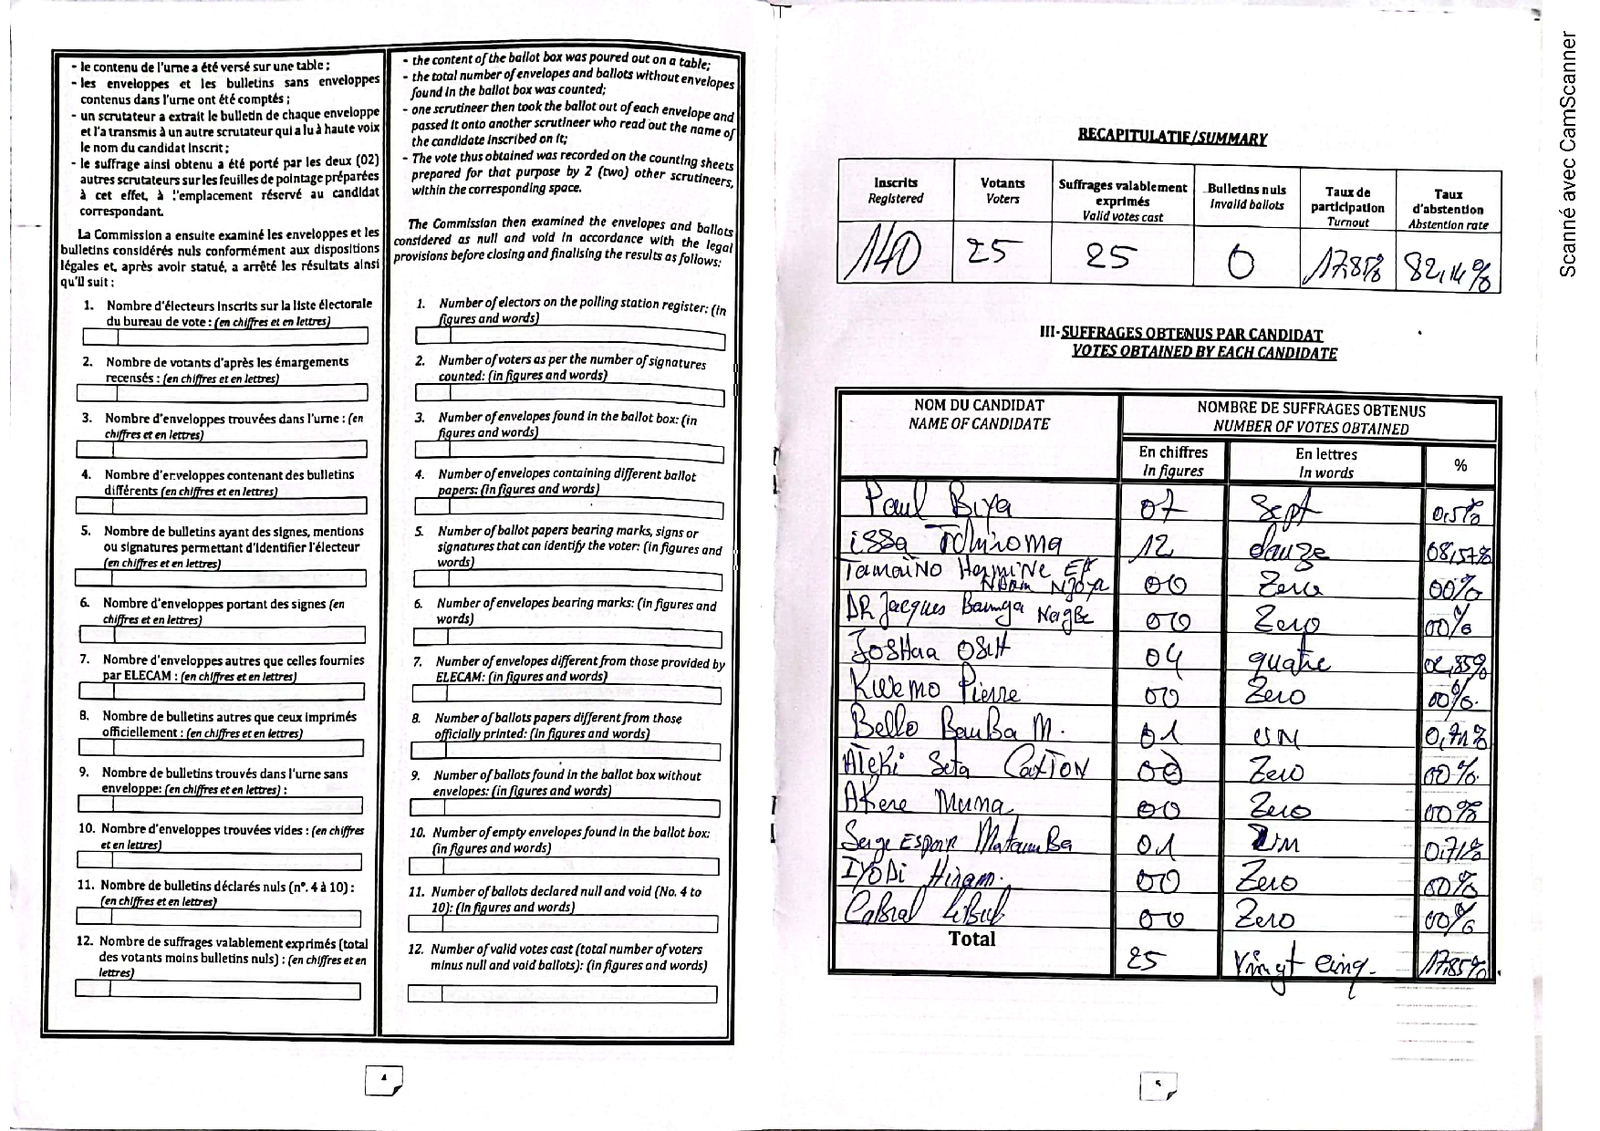 - le contenu de l'urne a été versé sur une table ;
- les enveloppes et les bulletins sans enveloppes
contenus dans l'urne ont été comptés ;
- un scrutateur a extrait le bulletin de chaque enveloppe
et l'a transmis à un autre scrutateur qui a lu à haute voix
le nom du candidat inscrit ;
- le suffrage ainsi obtenu a été porté par les deux (02)
autres scrutateurs sur les feuilles de pointage préparées
à cet effet, à l'emplacement réservé au candidat
correspondant.
La Commission a ensuite examiné les enveloppes et les
bulletins considérés nuls conformément aux dispositions
légales et, après avoir statué, a arrêté les résultats ainsi
qu'il suit :
1. Nombre d'électeurs inscrits sur la liste électorale
du bureau de vote : (en chiffres et en lettres)
2. Nombre de votants d'après les émargements
recensés : (en chiffres et en lettres)
3. Nombre d'enveloppes trouvées dans l'urne : (en
chiffres et en lettres)
4. Nombre d'enveloppes contenant des bulletins
différents (en chiffres et en lettres)
5. Nombre de bulletins ayant des signes, mentions
ou signatures permettant d'identifier l'électeur
(en chiffres et en lettres)
6. Nombre d'enveloppes portant des signes (en
chiffres et en lettres)
7. Nombre d'enveloppes autres que celles fournies
par ELECAM : (en chiffres et en lettres)
8. Nombre de bulletins autres que ceux imprimés
officiellement : (en chiffres et en lettres)
9. Nombre de bulletins trouvés dans l'urne sans
enveloppe: (en chiffres et en lettres) :
10. Nombre d'enveloppes trouvées vides : (en chiffres
et en lettres)
11. Nombre de bulletins déclarés nuls (n°. 4 à 10) :
(en chiffres et en lettres)
12. Nombre de suffrages valablement exprimés (total
des votants moins bulletins nuls) : (en chiffres et en
lettres)
- the content of the ballot box was poured out on a table;
- the total number of envelopes and ballots without envelopes
found in the ballot box was counted;
- one scrutineer then took the ballot out of each envelope and
passed it onto another scrutineer who read out the name of
the candidate inscribed on it;
- The vote thus obtained was recorded on the counting sheets
prepared for that purpose by 2 (two) other scrutineers,
within the corresponding space.
The Commission then examined the envelopes and ballots
considered as null and void in accordance with the legal
provisions before closing and finalising the results as follows:
1. Number of electors on the polling station register: (in
figures and words)
2. Number of voters as per the number of signatures
counted: (in figures and words)
3. Number of envelopes found in the ballot box: (in
figures and words)
4. Number of envelopes containing different ballot
papers: (in figures and words)
5. Number of ballot papers bearing marks, signs or
signatures that can identify the voter: (in figures and
words)
6. Number of envelopes bearing marks: (in figures and
words)
7. Number of envelopes different from those provided by
ELECAM: (in figures and words)
8. Number of ballots papers different from those
officially printed: (in figures and words)
9. Number of ballots found in the ballot box without
envelopes: (in figures and words)
10. Number of empty envelopes found in the ballot box:
(in figures and words)
11. Number of ballots declared null and void (No. 4 to
10): (in figures and words)
12. Number of valid votes cast (total number of voters
minus null and void ballots): (in figures and words)
4
RECAPITULATIF/SUMMARY
Inscrits Registered Votants Voters Suffrages valablement exprimés Valid votes cast Bulletins nuls Invalid ballots Taux de participation Turnout Taux d'abstention Abstention rate
140 25 25 0 17,85% 82,14%
III-SUFFRAGES OBTENUS PAR CANDIDAT
VOTES OBTAINED BY EACH CANDIDATE
NOM DU CANDIDAT
NAME OF CANDIDATE
NOMBRE DE SUFFRAGES OBTENUS
NUMBER OF VOTES OBTAINED
En chiffres In figures En lettres In words %
Paul Biya 07 Sept 0,5%
issa Tchiroma 12 douze 08,57%
Tomaïno Hermine Ep Ndam Njoya 00 Zero 00%
DR Jacques Bounga Nagbe 00 Zero 00%
JosHua OSiH 04 quatre 02,85%
Kwemo Pierre 00 Zero 00%.
Bello BouBa M. 01 UN 0,71%
Ateki Seta CaxTON 00 Zero 00%.
AKere Muna 00 Zero 00%
Serge Espoir MatoumBa 01 Un 0,71%
IyoDi Hiram. 00 Zero 00%
Cabral Libii 00 Zero 00%
Total 25 Vingt cinq. 17,85%
5
Scanné avec CamScanner